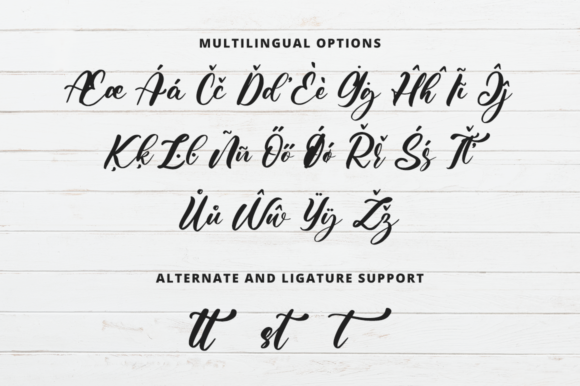 MULTILINGUAL OPTIONS
Ææ Áá Čč Ďď Èè Ġġ Ĥĥ Ĩĩ Ĵĵ
Ķķ Ŀŀ Ññ Őő Ǿǿ Řř Śś Ťť
Ůů Ŵŵ Ÿÿ Žž
ALTERNATE AND LIGATURE SUPPORT
tt st t